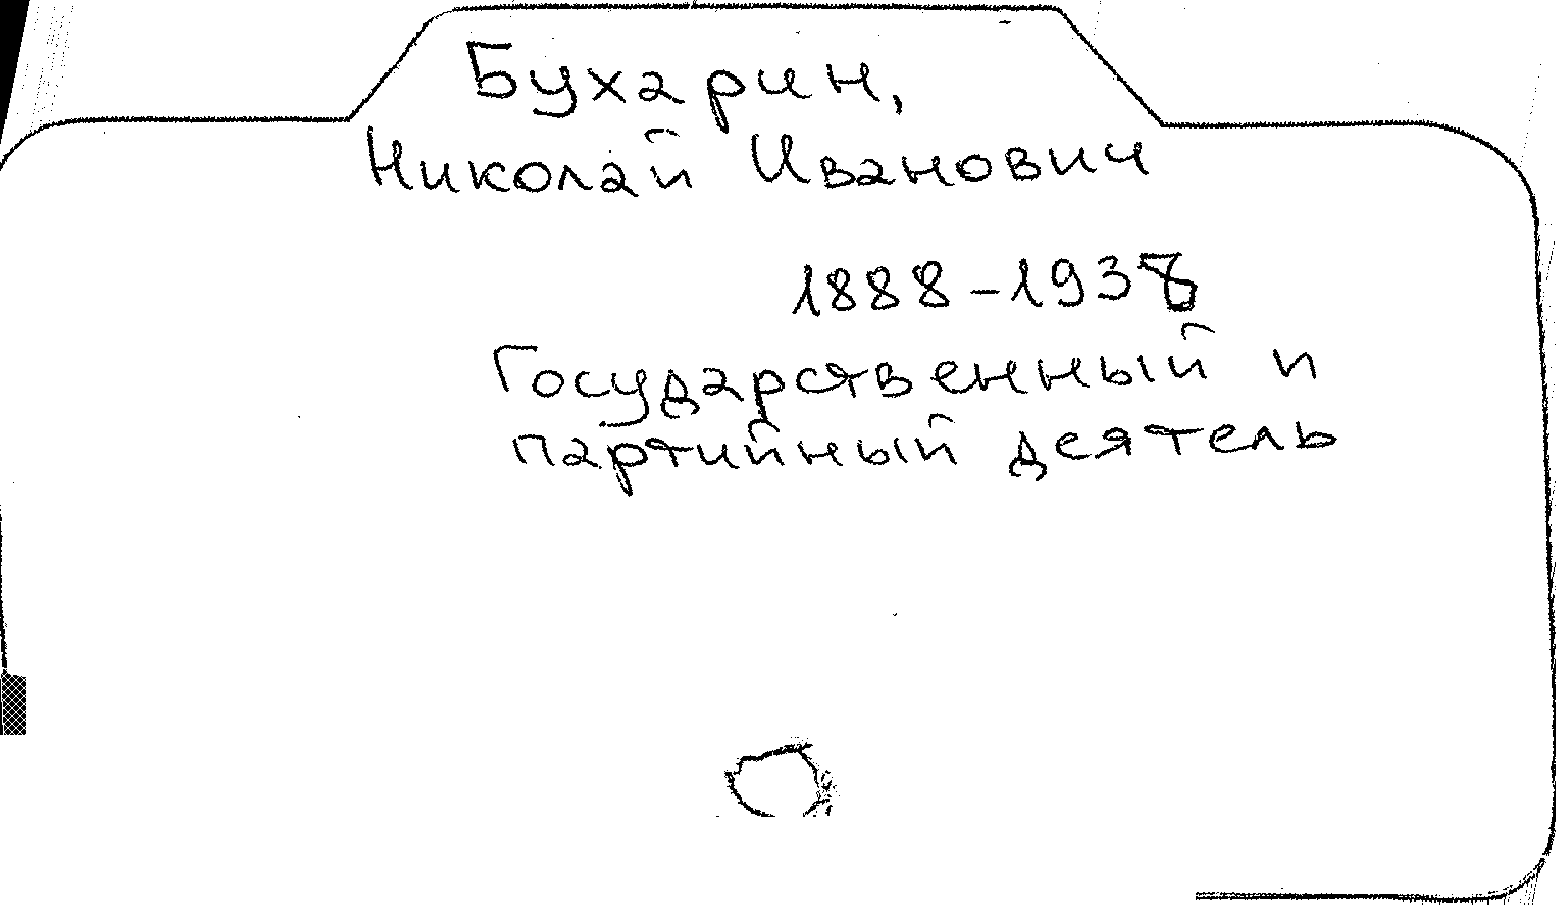 Бухарин,
Николай Иванович
1888-1938
Государственный и
партийный деятель